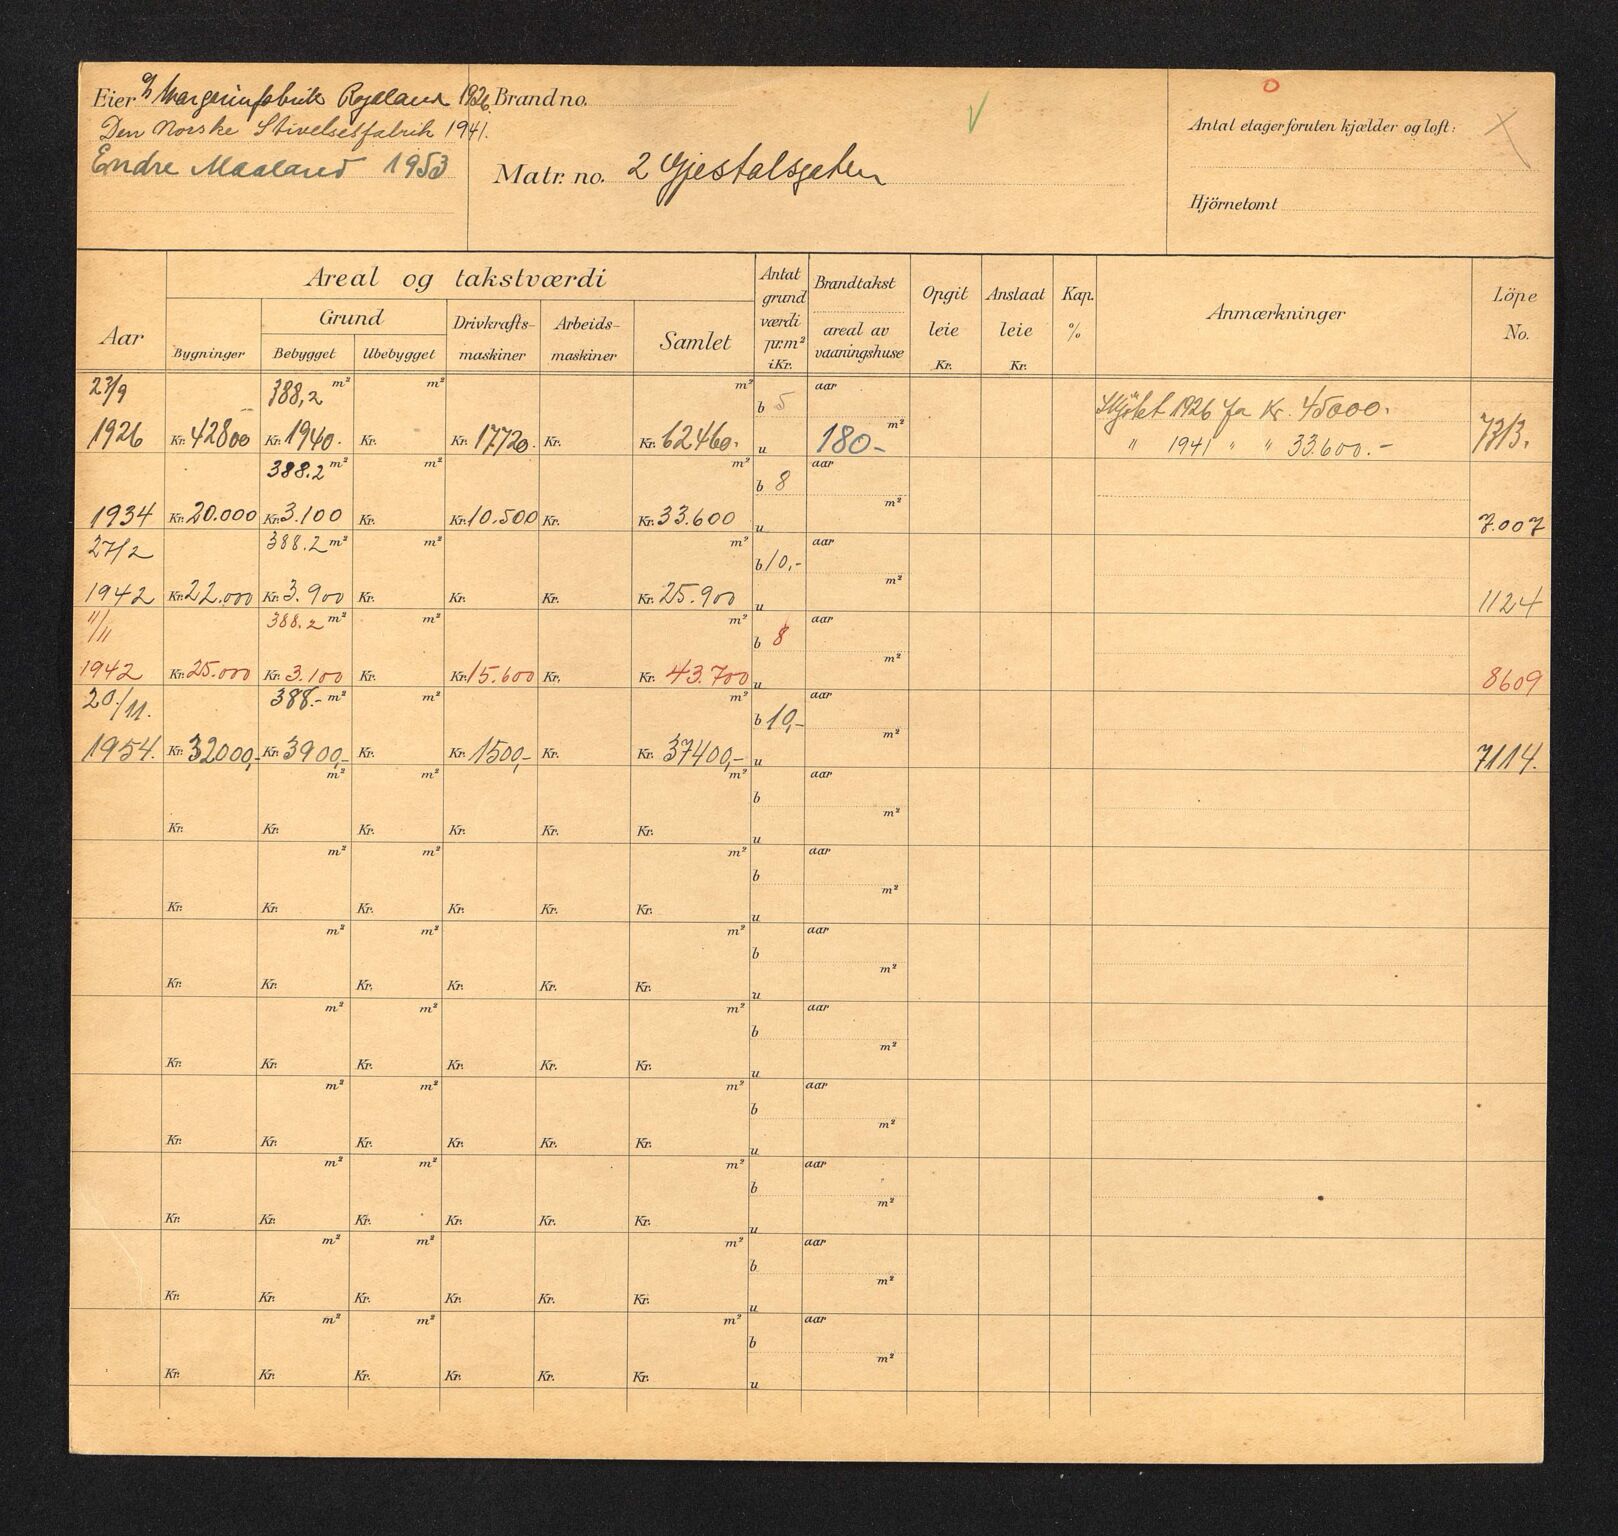 Eier A/S Margarinfabrik Rogaland 1926.
Den Norske Stivelsesfabrik 1941.
Endre Maaland 1953
Brand no.
Matr. no. 2 Gjestalsgaten
0
Antal etager foruten kjælder og loft: X
Hjörnetomt
Areal og takstværdi
Aar
Bygninger
Grund
Bebygget
Ubebygget
Drivkrafts-maskiner
Arbeids-maskiner
Samlet
Antat grund værdi pr. m² i Kr.
Brandtakst
areal av vaaningshuse
Opgit leie Kr.
Anslaat leie Kr.
Kap. %
Anmærkninger
Löpe No.
23/9 388,2 m² m² m² b 5 aar Skjötet 1926 fra Kr. 45000.
1926 Kr. 42800 Kr. 1940. Kr. Kr. 17720. Kr. Kr. 62460. u 180- m² " 1941 " " 33.600.- 7313.
388.2 m² m² m² b 8 aar
1934 Kr. 20.000 Kr. 3.100 Kr. Kr. 10.500 Kr. Kr. 33.600 u m² 7.007
27/2 388.2 m² m² m² b 10,- aar
1942 Kr. 22.000 Kr. 3.900 Kr. Kr. Kr. Kr. 25.900 u m² 1124
11/11 388.2 m² m² m² b 8 aar
1942 Kr. 25.000 Kr. 3.100 Kr. Kr. 15.600 Kr. Kr. 43.700 u m² 8609
20./11. 388.- m² m² m² b 10,- aar
1954. Kr. 32000,- Kr. 3900,- Kr. Kr. 1500,- Kr. Kr. 37400,- u m² 7114.
m² m² m² b aar
Kr. Kr. Kr. Kr. Kr. Kr. u m²
m² m² m² b aar
Kr. Kr. Kr. Kr. Kr. Kr. u m²
m² m² m² b aar
Kr. Kr. Kr. Kr. Kr. Kr. u m²
m² m² m² b aar
Kr. Kr. Kr. Kr. Kr. Kr. u m²
m² m² m² b aar
Kr. Kr. Kr. Kr. Kr. Kr. u m²
m² m² m² b aar
Kr. Kr. Kr. Kr. Kr. Kr. u m²
m² m² m² b aar
Kr. Kr. Kr. Kr. Kr. Kr. u m²
m² m² m² b aar
Kr. Kr. Kr. Kr. Kr. Kr. u m²